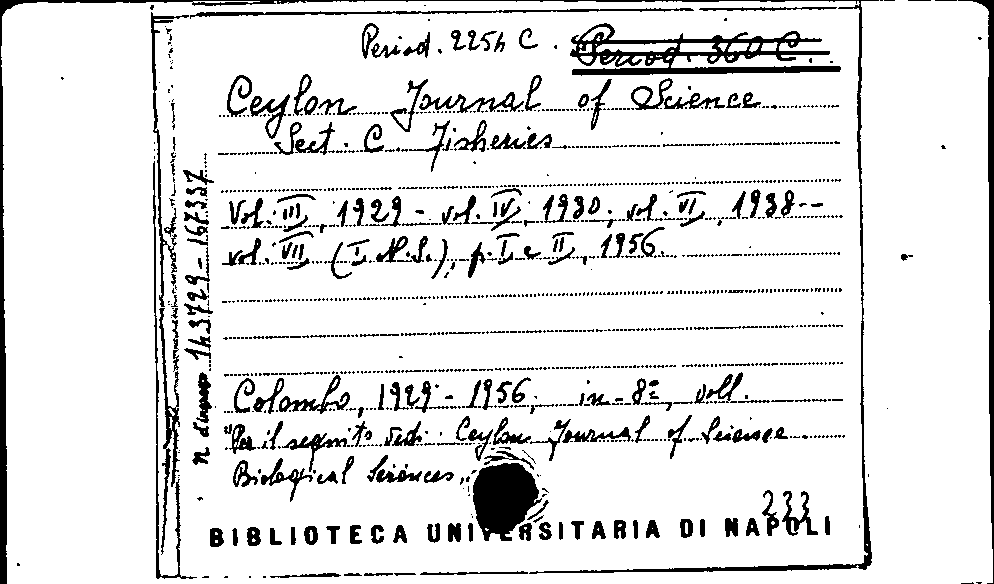 Period. 225h C. Period. 360 C.
Ceylon Journal of Science.
Sect. C. Fisheries.
Vol. III, 1929 - vol. IV, 1930; vol. VI, 1938--
vol. VII (I N.S.), p. I e II, 1956.
Colombo, 1929 - 1956; in-8º, voll.
"Per il seguito vedi: Ceylon Journal of Science.
Biological Sciences„
233
BIBLIOTECA UNIVERSITARIA DI NAPOLI
n. d'ingresso 143729 - 167337